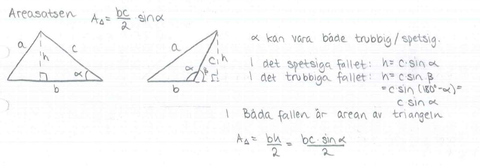 Areasatsen A△ = bc/2 · sinα
a h c α b
a h c α β b
α kan vara både trubbig/spetsig.
I det spetsiga fallet: h = c · sin α
I det trubbiga fallet: h = c sin β
= c sin (180°-α) =
c sin α
I Båda fallen är arean av triangeln
A△ = bh/2 = bc · sinα/2